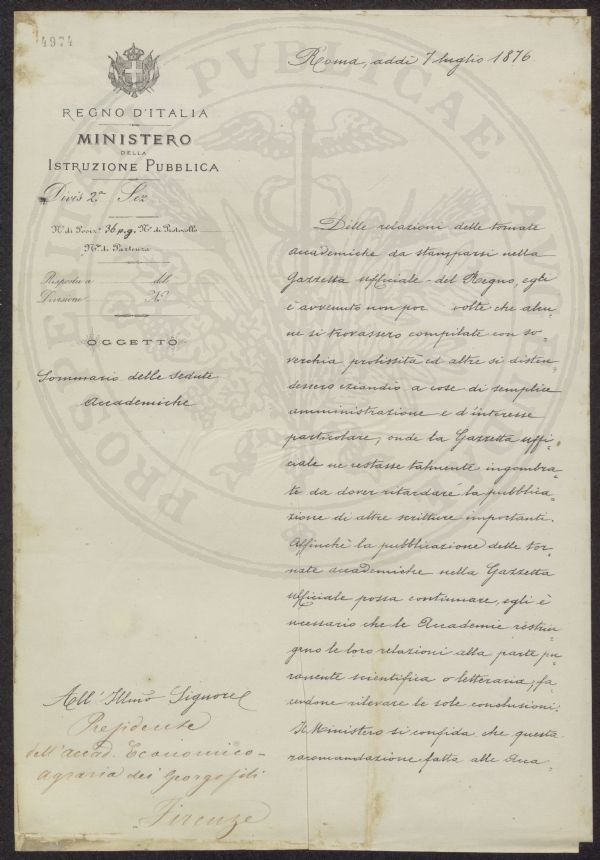 4974
Roma, addì 7 luglio 1876
REGNO D'ITALIA
MINISTERO
DELLA
ISTRUZIONE PUBBLICA
Divis 2ª Sez
N.º di Posiz.e 36 p.g. N.º di Protocollo
N.º di Partenza
Risposta a del
Divisione N.º
OGGETTO
Sommario delle sedute
Accademiche
Delle relazioni delle tornate
accademiche da stamparsi nella
Gazzetta ufficiale del Regno, egli
è avvenuto non poc volte che alcu-
ne si trovassero compilate con so-
verchia prolissità ed altre si disten-
dessero eziandio a cose di semplice
amministrazione e d'interesse
particolare, onde la Gazzetta uffi-
ciale ne restasse talmente ingombra-
ta da dover ritardare la pubblica-
zione di altre scritture importanti.
Affinchè la pubblicazione delle tor-
nate accademiche nella Gazzetta
ufficiale possa continuare, egli è
necessario che le Accademie restrin-
gno le loro relazioni alla parte pu-
ramente scientifica o letteraria, fa-
cendone rilevare le sole conclusioni.
Il Ministero si confida che questa
raccomandazione fatta alle Acca-
All' Illmo Signore
Presidente
dell'Accad. Economico-
agraria dei Georgofili
Firenze
PRO DEPUTA
PVBLICAE